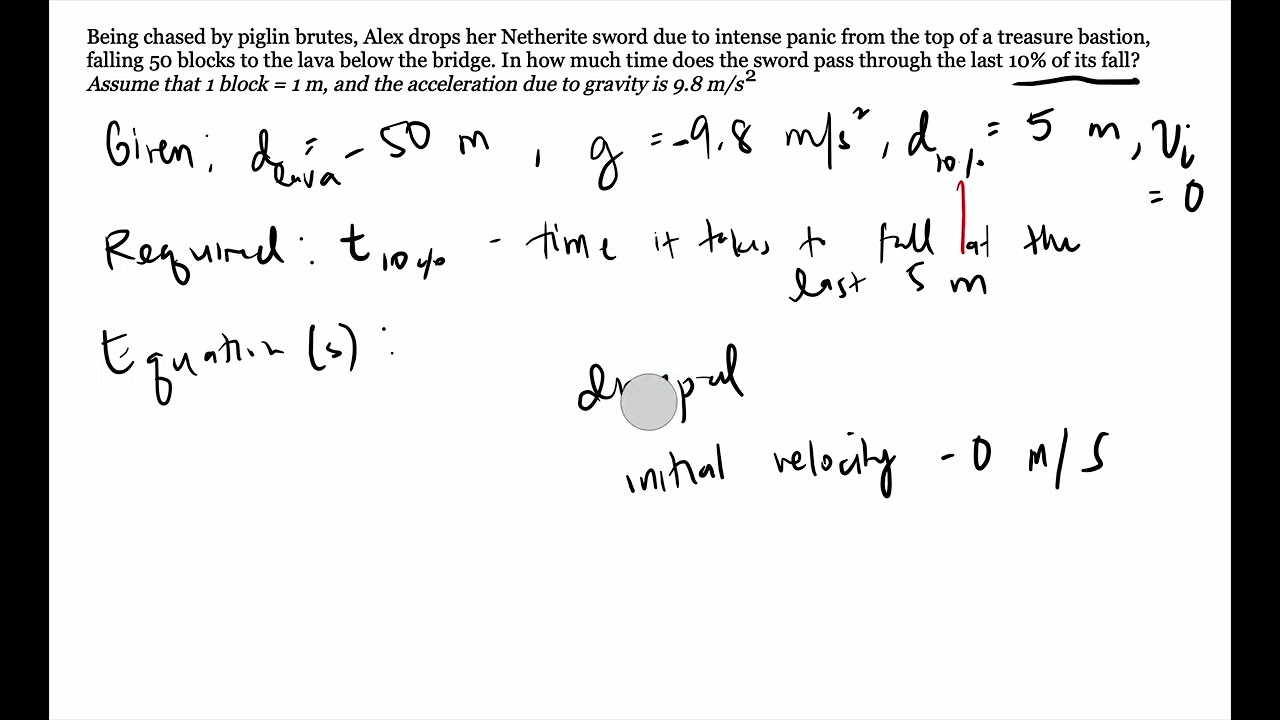 Being chased by piglin brutes, Alex drops her Netherite sword due to intense panic from the top of a treasure bastion,
falling 50 blocks to the lava below the bridge. In how much time does the sword pass through the last 10% of its fall?
Assume that 1 block = 1 m, and the acceleration due to gravity is 9.8 m/s²
Given: d_lava = -50 m, g = -9.8 m/s², d_10% = 5 m, V_i = 0
Required: t_10% - time it takes to fall at the
last 5 m
Equation(s):
initial velocity - 0 m/s